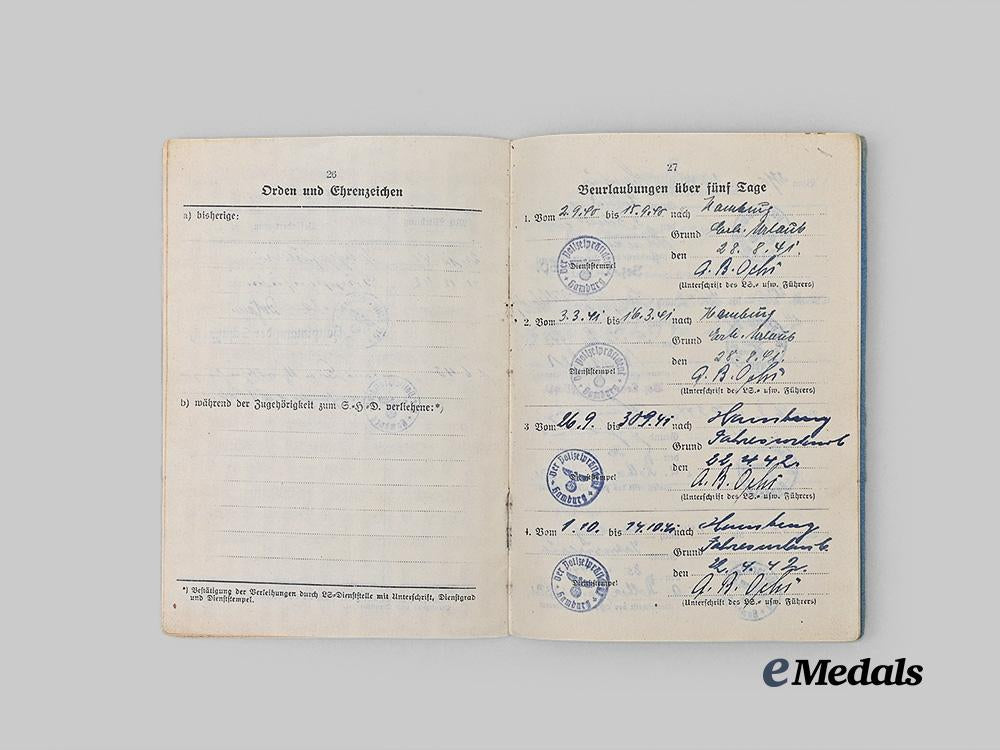 26
Orden und Ehrenzeichen
a) bisherige:
b) während der Zugehörigkeit zum S.-H.-D. verliehene:*)
*) Bestätigung der Verleihungen durch LS-Dienststelle mit Unterschrift, Dienstgrad
und Dienststempel.
27
Beurlaubungen über fünf Tage
1. Vom 2.9.40 bis 15.9.40 nach Hamburg
Grund Erh. Urlaub
Der Polizeipräsident Hamburg
Dienststempel
den 28.8.41
A. B. Ochs
(Unterschrift des LS.- usw. Führers)
2. Vom 3.3.41 bis 16.3.41 nach Hamburg
Grund Erh. Urlaub
D. Polizeipräsident Hamburg
Dienststempel
den 28.8.41.
A. B. Ochs
(Unterschrift des LS.- usw. Führers)
3 Vom 26.9. bis 30.9.41 nach Hamburg
Grund Jahresurlaub
Der Polizeipräsident Hamburg
Dienststempel
den 22.4.42.
A. B. Ochs
(Unterschrift des LS.- usw. Führers)
4. Vom 1.10. bis 14.10.41 nach Hamburg
Grund Jahresurlaub
Der Polizeipräsident Hamburg
Dienststempel
den 22.4.42.
A. B. Ochs
(Unterschrift des LS.- usw. Führers)
eMedals